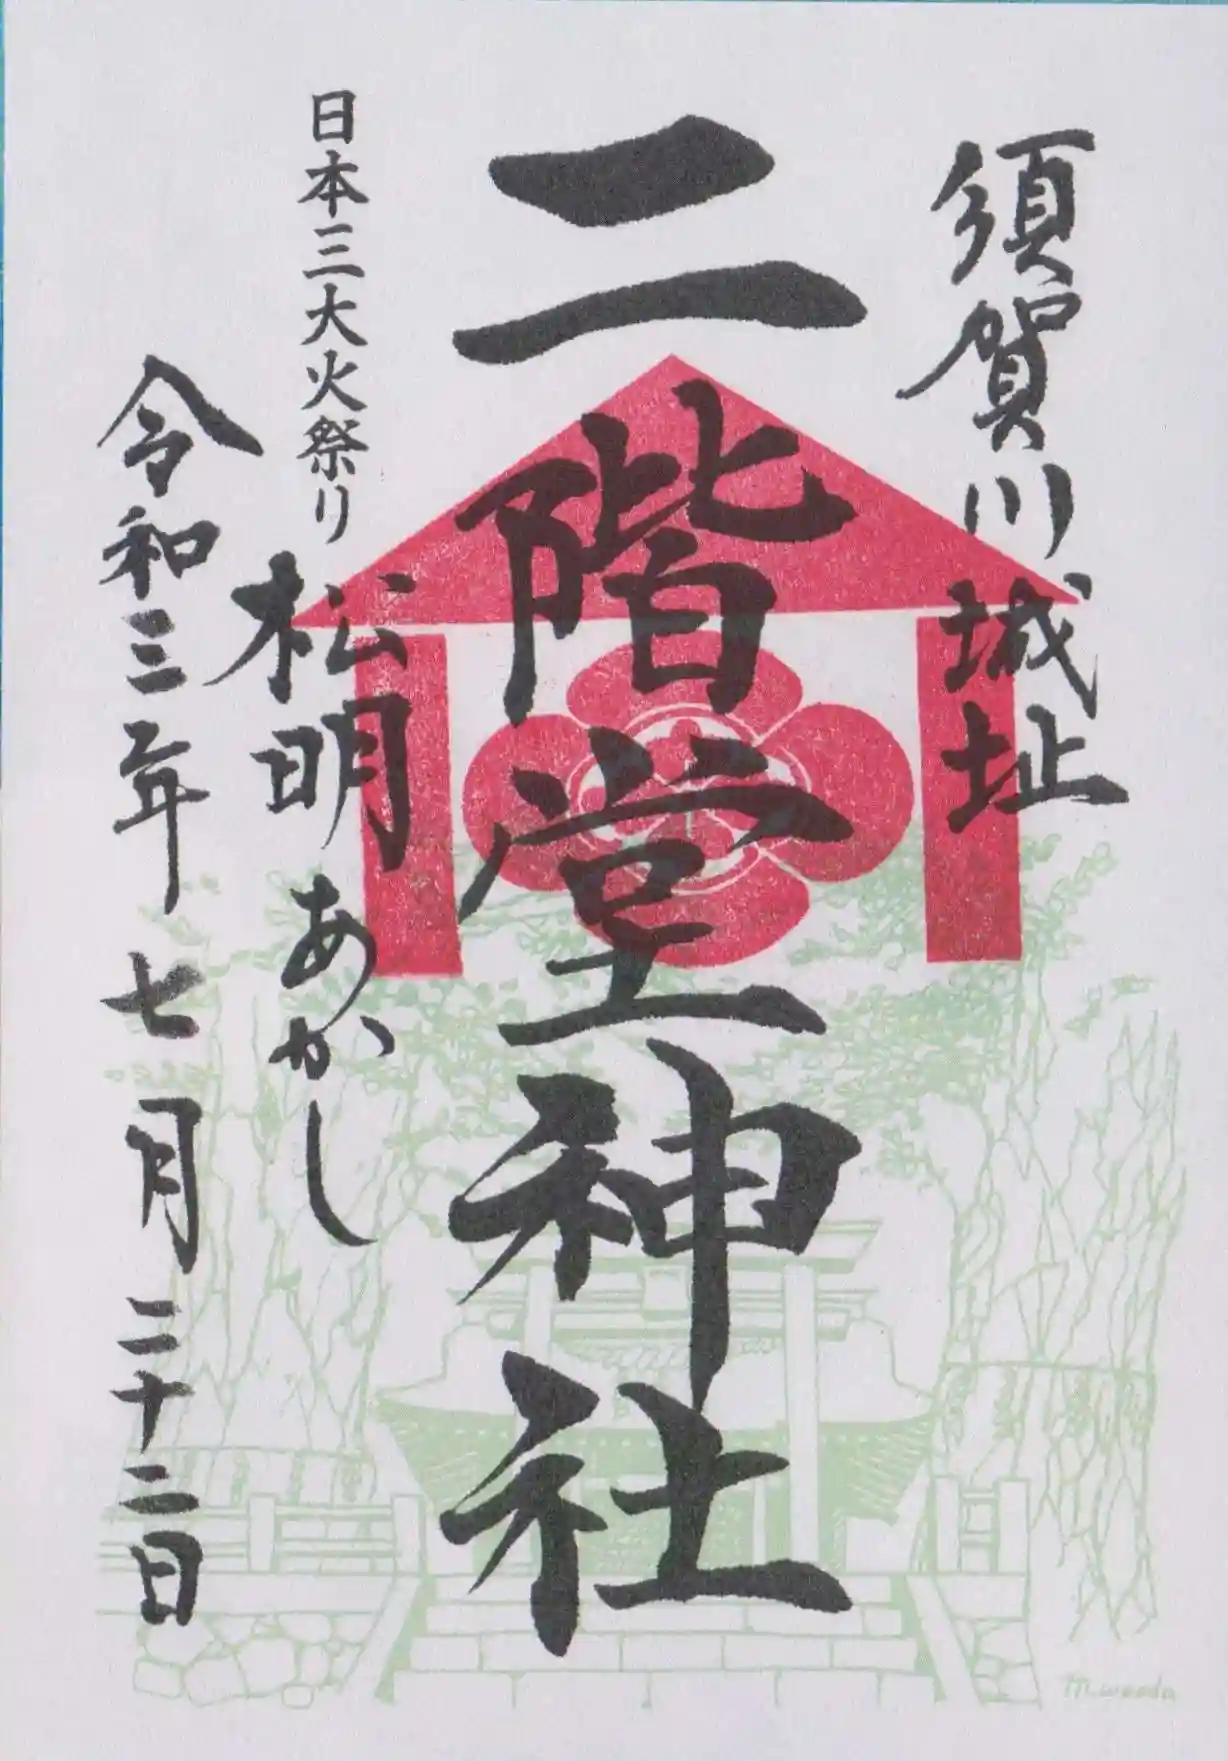 須賀川城址
二階堂神社
日本三大火祭り
松明あかし
令和三年七月二十二日